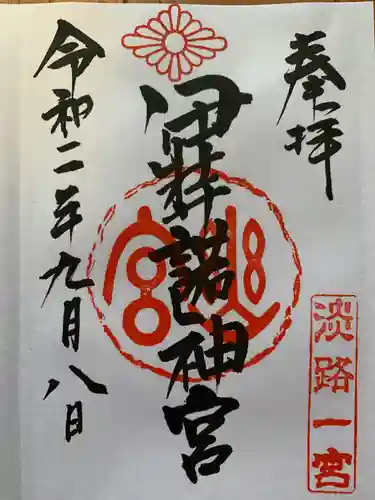 奉拝
淡路一宮
伊弉諾神宮
令和二年九月八日